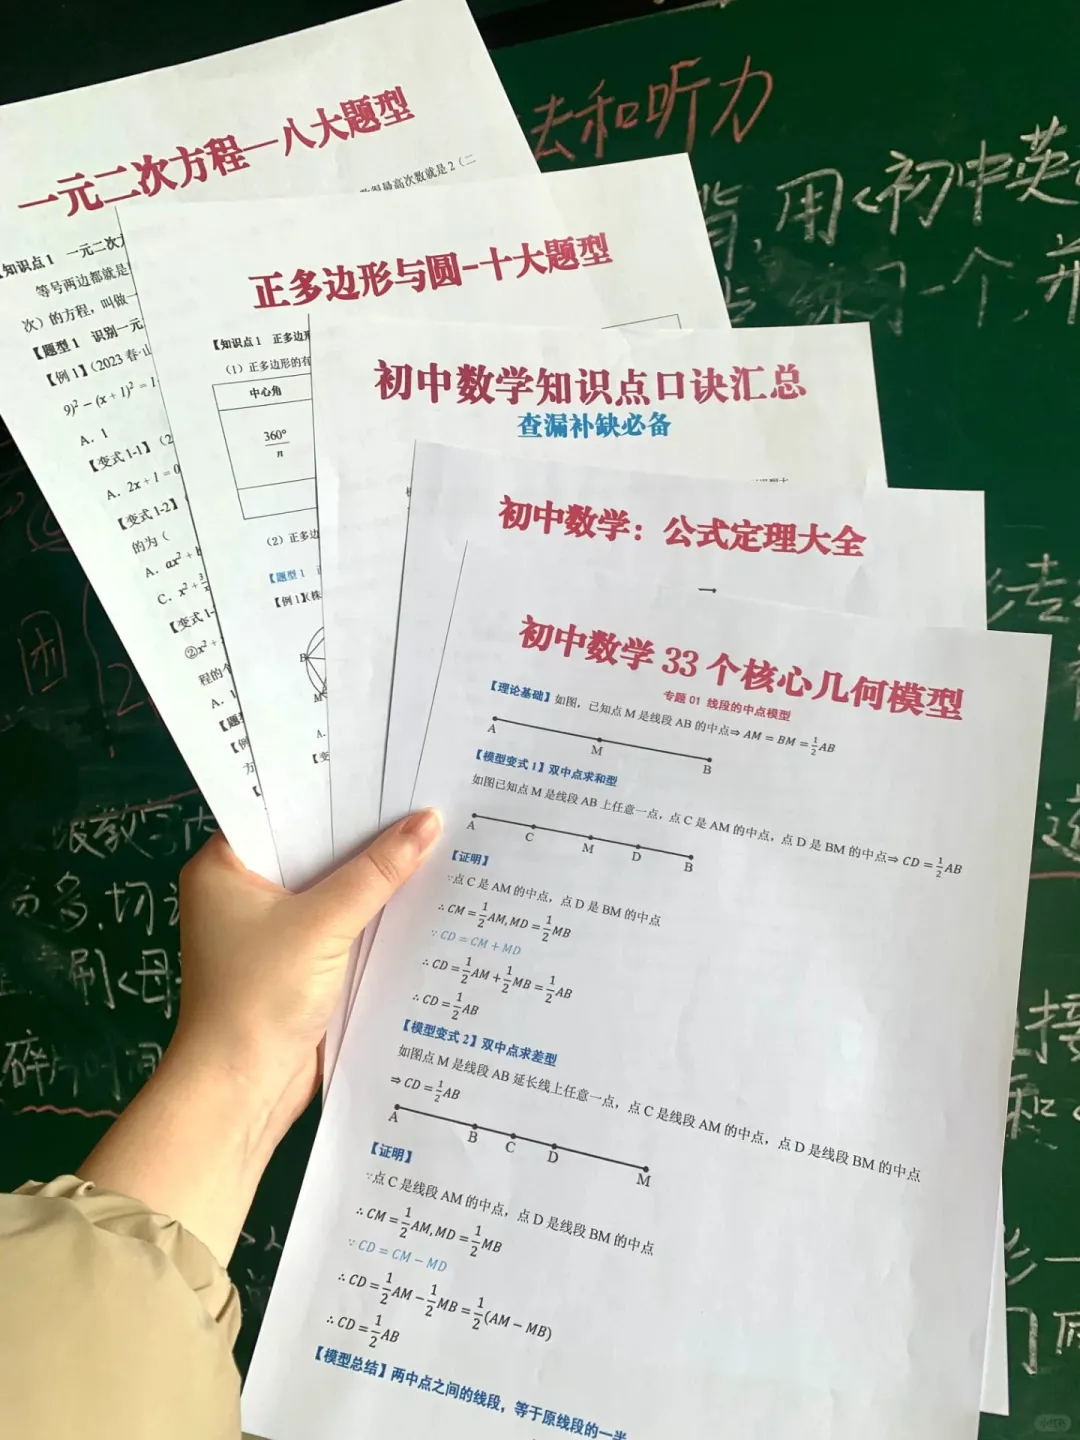 去和听力
背,用<初中英
练习一个,并
一元二次方程—八大题型
最高次数就是2(二
【知识点1 一元二次方
等号两边都就是
次)的方程,叫做一
【题型1 识别一元
【例1】(2023春·山
9)² − (x + 1)² = 1
A. 1
【变式1-1】(2
A. 2x + 1 = 0
【变式1-2】
的为(
A. ax² + b
C. x² + 3/x
【变式1-
②x² +
程的个
A. 1
【题
【例
方
正多边形与圆-十大题型
【知识点1 正多边形
(1)正多边形的有
中心角
360°/n
(2)正多边
【题型1
【例1】(株
B
M
A.
【变
初中数学知识点口诀汇总
查漏补缺必备
初中数学:公式定理大全
一
初中数学 33 个核心几何模型
专题 01 线段的中点模型
【理论基础】如图,已知点 M 是线段 AB 的中点⇒ AM = BM = 1/2 AB
A M B
【模型变式1】双中点求和型
如图已知点 M 是线段 AB 上任意一点,点 C 是 AM 的中点,点 D 是 BM 的中点⇒ CD = 1/2 AB
A C M D B
【证明】
∵点 C 是 AM 的中点,点 D 是 BM 的中点
∴ CM = 1/2 AM, MD = 1/2 MB
∵ CD = CM + MD
∴ CD = 1/2 AM + 1/2 MB = 1/2 AB
∴ CD = 1/2 AB
【模型变式2】双中点求差型
如图点 M 是线段 AB 延长线上任意一点,点 C 是线段 AM 的中点,点 D 是线段 BM 的中点
⇒ CD = 1/2 AB
A B C D M
【证明】
∵点 C 是线段 AM 的中点,点 D 是线段 BM 的中点
∴ CM = 1/2 AM, MD = 1/2 MB
∵ CD = CM − MD
∴ CD = 1/2 AM − 1/2 MB = 1/2 (AM − MB)
∴ CD = 1/2 AB
【模型总结】两中点之间的线段,等于原线段的一半
团
刷<母
碎片时间
接
和